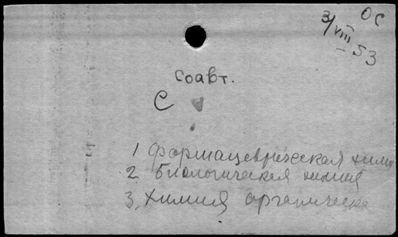 ОС
3/VIII-53
соавт.
С
1 фармацевтическая химия
2 биологическая химия
3, химия органическа